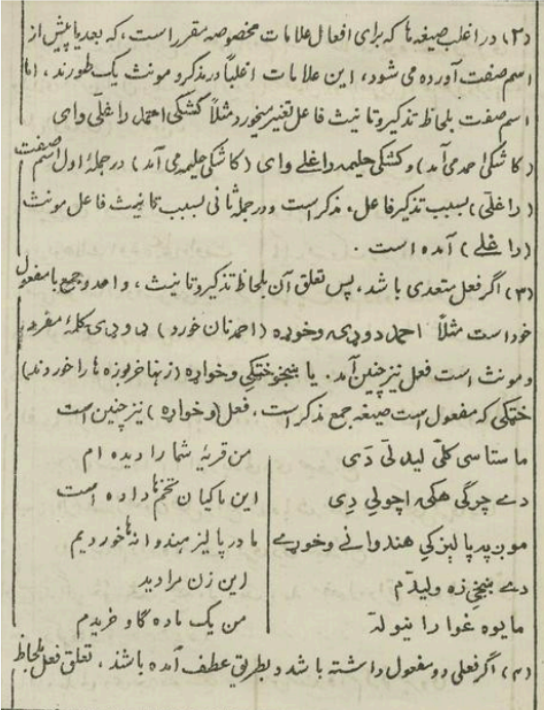 (۲) در اغلب صیغه ها که برای افعال علامات مخصوصه مقرر است، که بعد یا پیش از
اسم صفت آورده می شود، این علامات اغلباً در مذکر و مونث یک طورند، اما
اسم صفت بلحاظ تذکیر و تانیث فاعل تغیر میخورد مثلاً کشکی احمد راغلی وای
(کاشکی احمد می آمد) و کشکی حلیمه راغلے وای (کاشکی حلیمه می آمد) در جملۀ اول اسم صفت
(راغلی) بسبب تذکیر فاعل، مذکر است و در جملۀ ثانی بسبب تانیث فاعل مونث
(راغلے) آمده است.
(۳) اگر فعل متعدی باشد، پس تعلق آن بلحاظ تذکیر و تانیث، واحد و جمع با مفعول
خود است مثلاً احمد دوډۍ وخوړه (احمد نان خورد) کلمۀ مفرد،
و مونث است فعل نیز چنین آمد. یا ښځو ختکي وخواړه (زنها خربوزه ها را خوردند)
ختکي که مفعول است صیغه جمع مذکر است، فعل (وخواړه) نیز چنین است
ما ستاسی کلی لیدلی دی
من قریۀ شما را دیده ام
دے چرګی هګۍ اچولي دي
این ماکیان تخم ها داده است
موږ په پالېز کي هندوانے وخوړے
ما در پالیز هندوانه ها خوردیم
دے ښځي زه ولیدم
این زن مرا دید
ما یوه غوا رانیوله
من یک ماده گاو خریدم
(۴) اگر فعلی دو مفعول داشته باشد و بطریق عطف آمده باشند، تعلق فعل بلحاظ